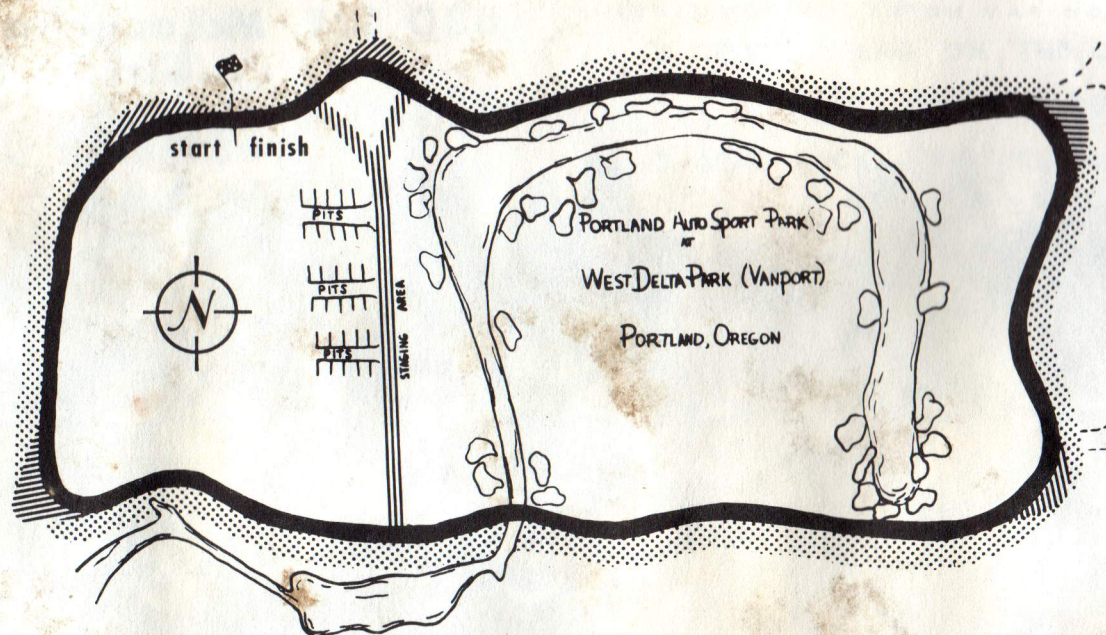 start finish
PITS
PITS
PITS
STAGING AREA
N
PORTLAND AUTO SPORT PARK
AT
WEST DELTA PARK (VANPORT)
PORTLAND, OREGON